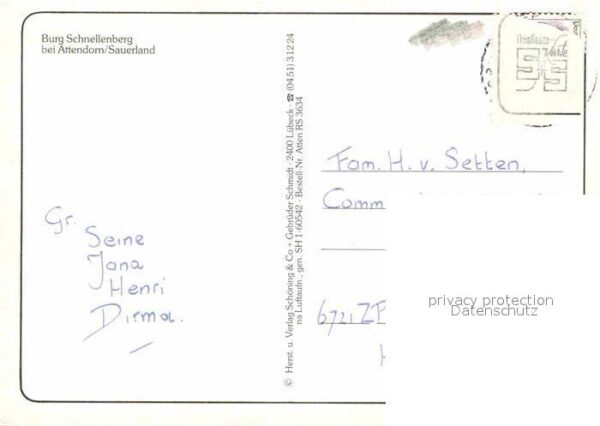 Burg Schnellenberg
bei Attendorn/Sauerland
Gr.
Seine
Jana
Henri
Dirma.
© Herst. u. Verlag Schöning & Co + Gebrüder Schmidt · 2400 Lübeck · ☎ (04 51) 3 12 24
na Luftaufn., gen. SH 1-60542 · Bestell-Nr. Atten RS 3634
Fam. H. v. Setten,
Comm
6721 ZF
privacy protection
Datenschutz